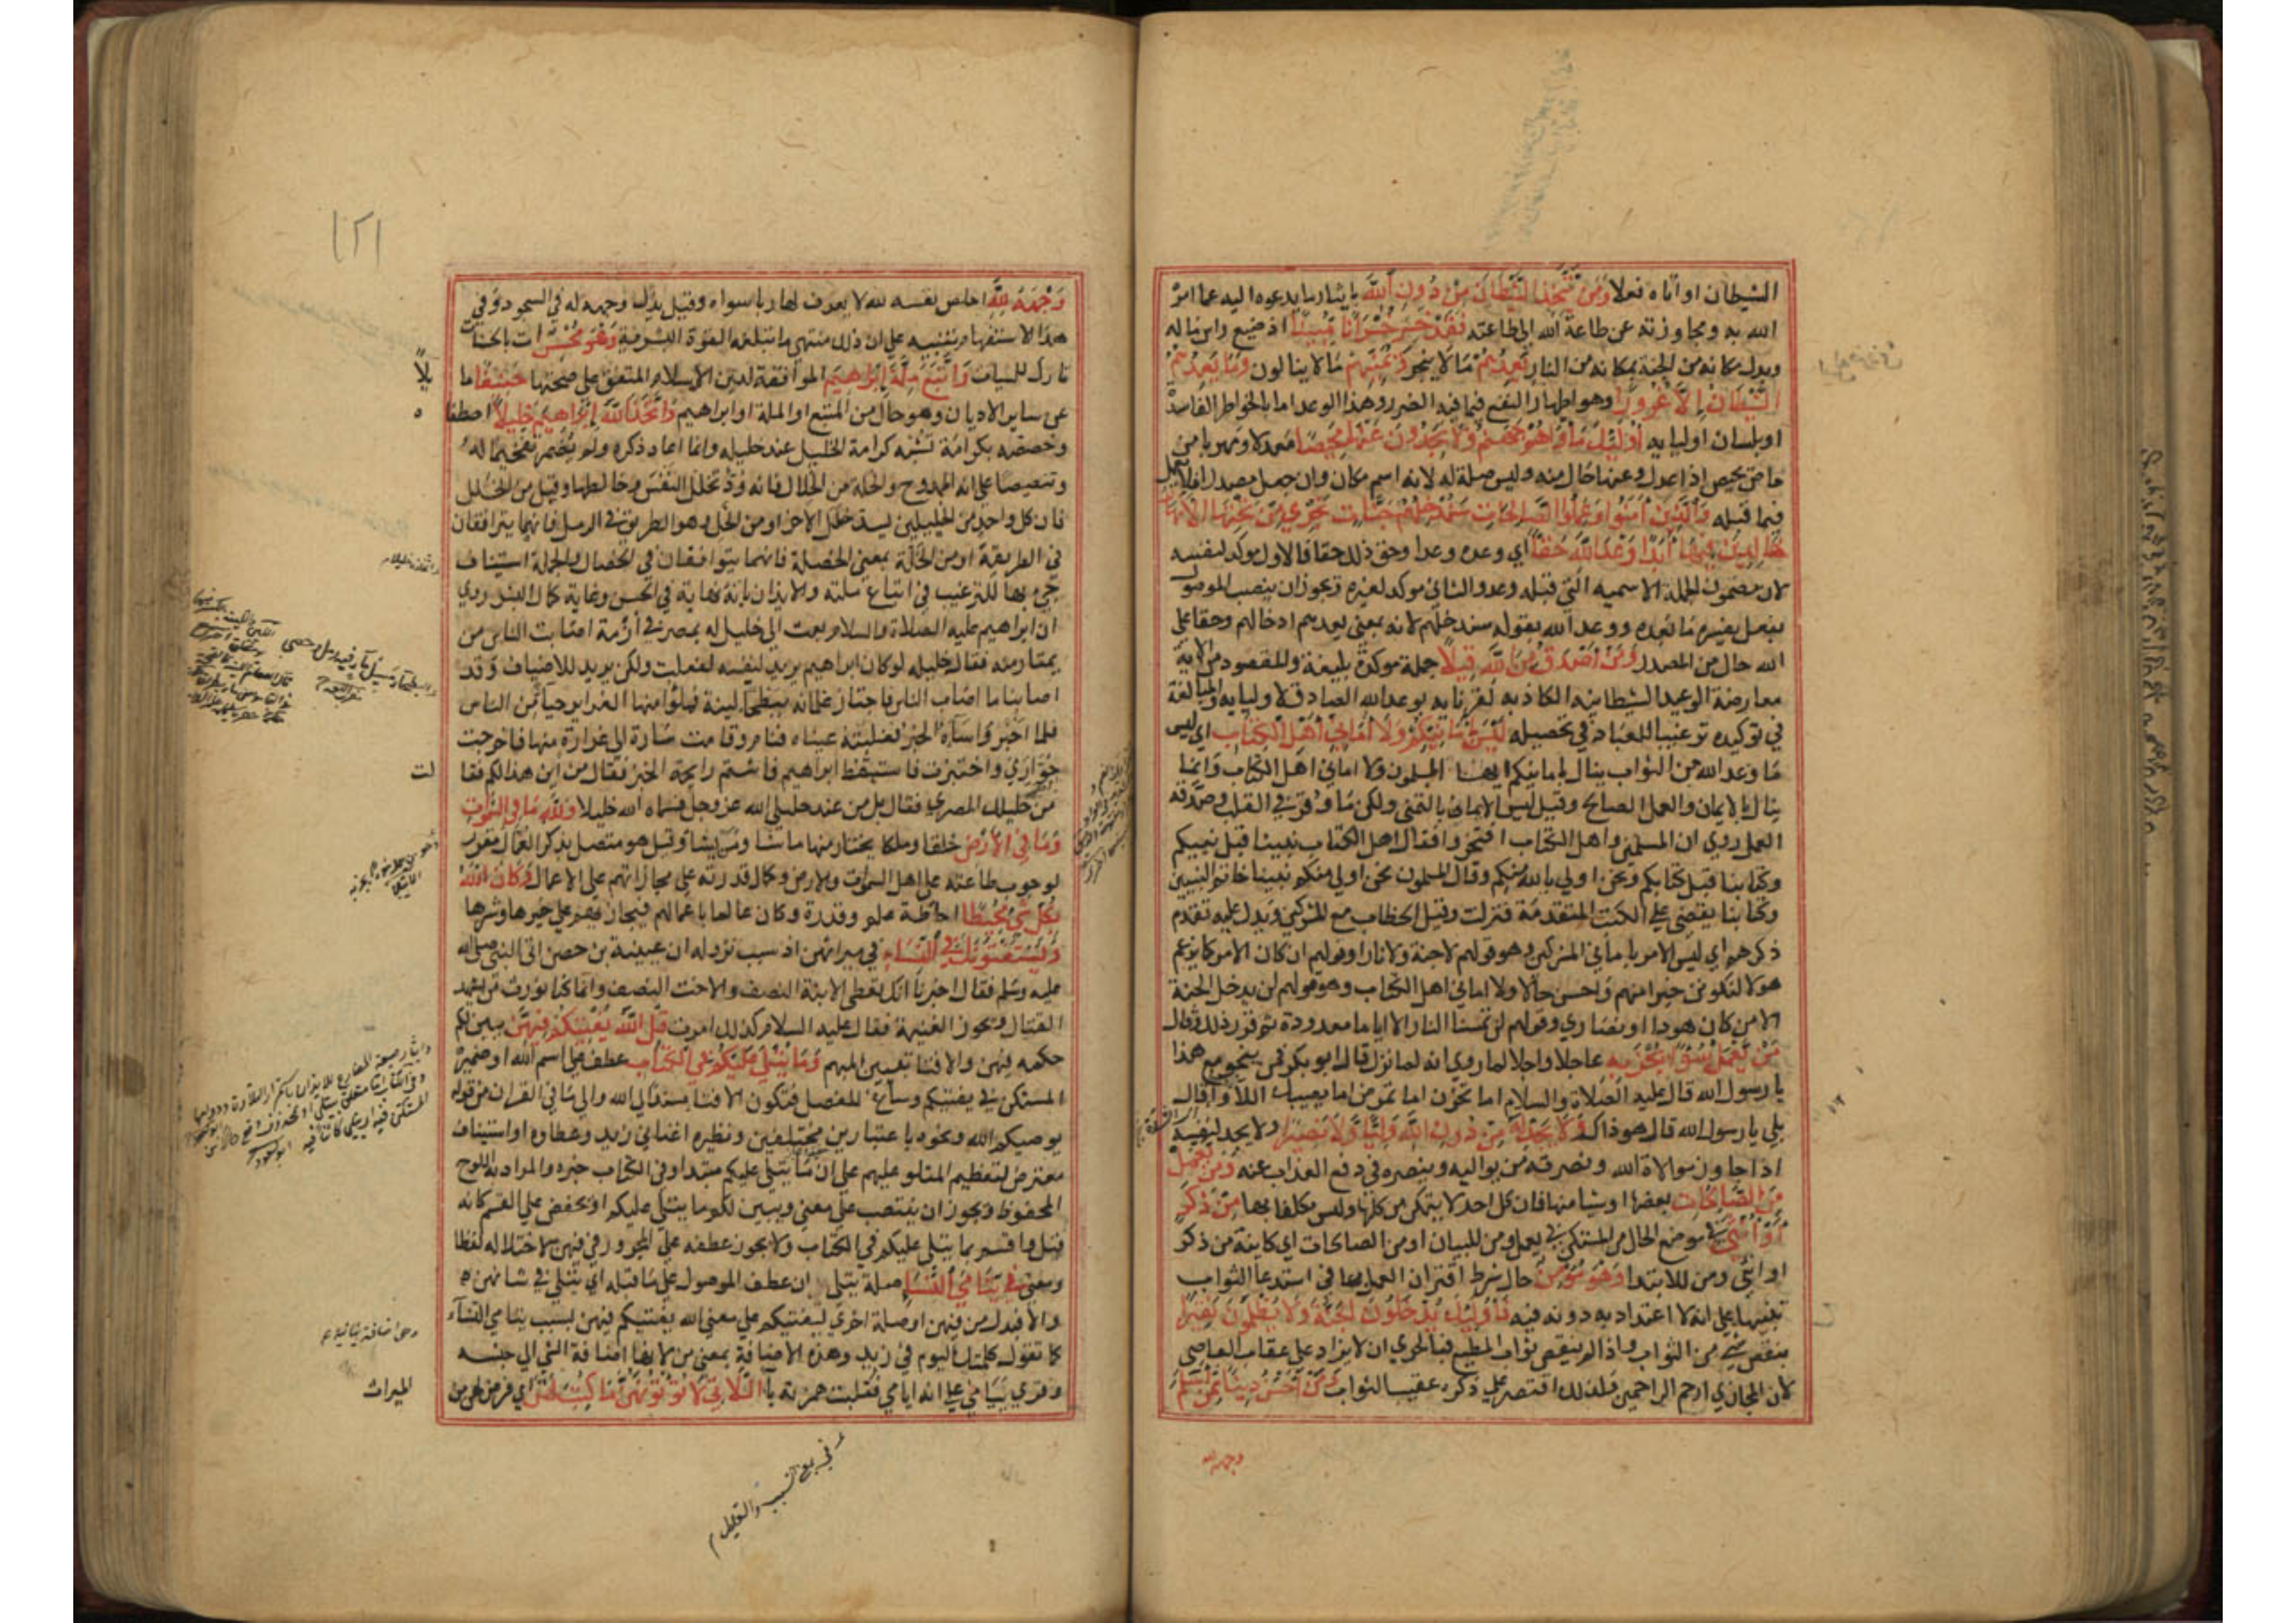 الشيطان او اتاه فعلا ومن يتخذ الشيطان من دون الله بايثار ما يدعوه اليه عما امر
الله به ومجاوزته عن طاعة الله الى طاعته فقد خسر خسرانا مبينا اذ ضيع راس ماله
وبدل مكانه من الجنة بمكانه من النار يعدهم ما لا ينجز ويمنيهم ما لا ينالون وما يعدهم
الشيطان الا غرورا وهو اظهار النفع فيما فيه الضرر وهذا الوعد اما بالخواطر الفاسدة
او بلسان اوليايه اوليك ماواهم جهنم ولا يجدون عنها محيصا معدلا ومهربا من
حاص يحيص اذا عدل وعنها حال منه وليس صلة له لانه اسم مكان وان جعل مصدرا فلا يعمل
فيما قبله والذين امنوا وعملوا الصالحات سندخلهم جنات تجري من تحتها الانهار
خالدين فيها ابدا وعد الله حقا اي وعده وعدا وحق ذلك حقا فالاول موكد لنفسه
لان مضمون الجملة الاسميه التي قبله وعد والثاني موكد لغيره ويجوز ان ينصب الموصول
بفعل يفسره ما بعده ووعد الله بقوله سندخلهم لانه بمعنى يعدهم ادخالهم وحقا على
الله حال من المصدر ومن اصدق من الله قيلا جملة موكدة بليغة والمقصود من الاية
معارضة المواعيد الشيطانيه الكاذبه لقرنايه بوعد الله الصادق لاوليايه والمبالغة
في توكيده ترغيبا للعباد في تحصيله ليس بامانيكم ولا اماني اهل الكتاب اي ليس
ما وعد الله من الثواب ينال بامانيكم ايها المسلمون ولا اماني اهل الكتاب وانما
ينال بالايمان والعمل الصالح وقيل ليس الايمان بالتمني ولكن ما وقر في القلب وصدقه
العمل روي ان المسلمين واهل الكتاب افتخروا فقال اهل الكتاب نبينا قبل نبيكم
وكتابنا قبل كتابكم ونحن اولى بالله منكم وقال المسلمون نحن اولى منكم نبينا خاتم النبيين
وكتابنا يقضي على الكتب المتقدمة فنزلت وقيل الخطاب مع المشركين ويدل عليه تقدم
ذكرهم اي ليس الامر باماني المشركين وهو قولهم لا جنة ولا نار او قولهم ان كان الامر كما يزعم
هولا لنكونن خيرا منهم واحسن حالا ولا اماني اهل الكتاب وهو قولهم لن يدخل الجنة
الا من كان هودا او نصاري وقولهم لن تمسنا النار الا اياما معدودة ثم قرر ذلك وقال
من يعمل سوءا يجز به عاجلا واجلا لما روي انه لما نزل قال ابو بكر فمن ينجو مع هذا
يا رسول الله قال عليه الصلاة والسلام اما تحزن اما تمرض اما يصيبك اللاواء قال
بلى يا رسول الله قال هو ذاك ولا يجد له من دون الله وليا ولا نصيرا ولا يجد لنفسه
اذا جاوز موالاة الله ونصرته من يواليه وينصره في دفع العذاب عنه ومن يعمل
من الصالحات بعضها او شيا منها فان كل احد لا يتمكن من كلها وليس مكلفا بها من ذكر
او انثى في موضع الحال من المستكن في يعمل ومن للبيان او من الصالحات اي كاينة من ذكر
او انثى ومن للابتدا وهو مومن حال شرط اقتران العمل بها في استدعا الثواب
تنبيها على انه لا اعتداد به دونه فيه فاوليك يدخلون الجنة ولا يظلمون نقيرا
بنقص شي من الثواب واذا لم ينقص ثواب المطيع فبالحري ان لا يزاد على عقاب العاصي
لان المجازي ارحم الراحمين فلذلك اقتصر على ذكره عقيب الثواب ومن احسن دينا ممن اسلم
وجهه لله
١٢١
وجهه لله اخلص نفسه لله لا يعرف لها ربا سواه وقيل بذل وجهه له في السجود وفي
هذا الاستفهام تنبيه على ان ذلك منتهى ما تبلغه القوة البشرية وهو محسن ات بالحسنات
تارك للسيات واتبع ملة ابراهيم الموافقة لدين الاسلام المتفق على صحتها حنيفا ما
يلا
عن ساير الاديان وهو حال من المتبع او الملة او ابراهيم واتخذ الله ابراهيم خليلا اصطفا
ه
وخصصه بكرامة تشبه كرامة الخليل عند خليله وانما اعاد ذكره ولم يضمر تفخيما له
وتنصيصا على انه الممدوح والخلة من الخلال فانه ود تخلل النفس وخالطها وقيل من الخلل
فان كل واحد من الخليلين يسد خلل الاخر او من الخل وهو الطريق في الرمل فانهما يترافقان
في الطريقة او من الخلة بمعنى الخصلة فانهما يتوافقان في الخصال والجملة استيناف
جي بها للترغيب في اتباع ملته والايذان بانه نهاية في الحسن وغاية كمال البشر روي
ان ابراهيم عليه الصلاة والسلام بعث الى خليل له بمصر في ازمة اصابت الناس من
يمتار منه فقال خليله لو كان ابراهيم يريد لنفسه لفعلت ولكن يريد للاضياف وقد
اصابنا ما اصاب الناس فاجتاز غلمانه ببطحا لينة فملوا منها الغراير حيا من الناس
فلما اخبروا ساه الخبر فغلبته عيناه فنام وقامت سارة الى غرارة منها فاخرجت
حوارى واختبزت فاستيقظ ابراهيم فاشتم رايحة الخبز فقال من اين هذا لكم فقا
لت
من خليلك المصري فقال بل من عند خليلي الله عز وجل فسماه الله خليلا ولله ما في السموات
وما في الارض خلقا وملكا يختار منها ما يشا ومن يشا وقيل هو متصل بذكر العمال مقرر
لوجوب طاعته على اهل السموات والارض وكمال قدرته على مجازاتهم على الاعمال وكان الله
بكل شي محيطا احاطة علم وقدرة وكان عالما باعمالهم فيجازيهم على خيرها وشرها
ويستفتونك في النساء في ميراثهن اذ سبب نزوله ان عيينة بن حصن اتى النبي صلى الله
عليه وسلم فقال اخبرنا انك تعطي الابنة النصف والاخت النصف وانما كنا نورث من يشهد
القتال ويحوز الغنيمة فقال عليه السلام كذلك امرت قل الله يفتيكم فيهن يبين لكم
حكمه فيهن والافتا تبيين المبهم وما يتلى عليكم في الكتاب عطف على اسم الله او ضميره
المستكن في يفتيكم وساغ للفصل فيكون الافتا مستندا الى الله والى ما في القران من قوله
يوصيكم الله ونحوه باعتبارين مختلفين ونظيره اغناني زيد وعطاوه او استيناف
معترض لتعظيم المتلو عليهم على ان ما يتلى عليكم مبتدا وفي الكتاب خبره والمراد به اللوح
المحفوظ ويجوز ان ينتصب على معنى ويبين لكم ما يتلى عليكم او يخفض على القسم كانه
قيل واقسم بما يتلى عليكم في الكتاب ولا يجوز عطفه على المجرور في فيهن لاختلاله لفظا
ومعنى في يتامى النساء صلة يتلى ان عطف الموصول على ما قبله اي يتلى في شانهن
والا فبدل من فيهن او صلة اخرى ليفتيكم على معنى الله يفتيكم فيهن بسبب يتامى النساء
كما تقول كلمتك اليوم في زيد وهذه الاضافة بمعنى من لانها اضافة الشي الى جنسه
وقري ييامى على انه ايامى فقلبت همزته يا اللاتي لا توتونهن ما كتب لهن اي فرض لهن من
الميراث